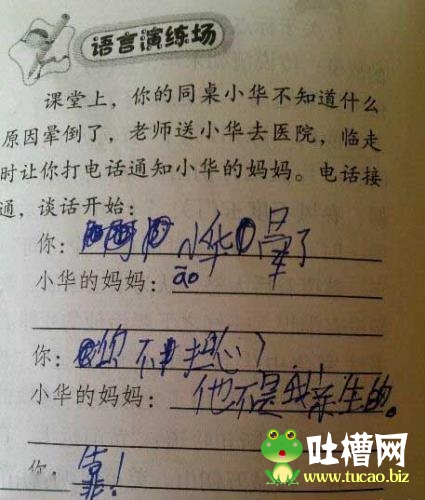 语言演练场
课堂上，你的同桌小华不知道什么
原因晕倒了，老师送小华去医院，临走
时让你打电话通知小华的妈妈。电话接
通，谈话开始：
你：小华晕了
小华的妈妈：āo
你：你不担心？
小华的妈妈：他不是我亲生的。
你：靠！
吐槽网
www.tucao.biz